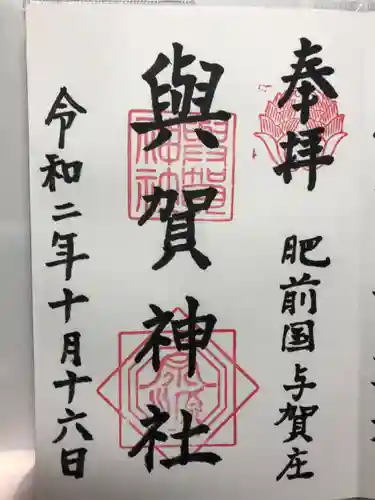 奉拝
肥前国与賀庄
與賀神社
令和二年十月十六日